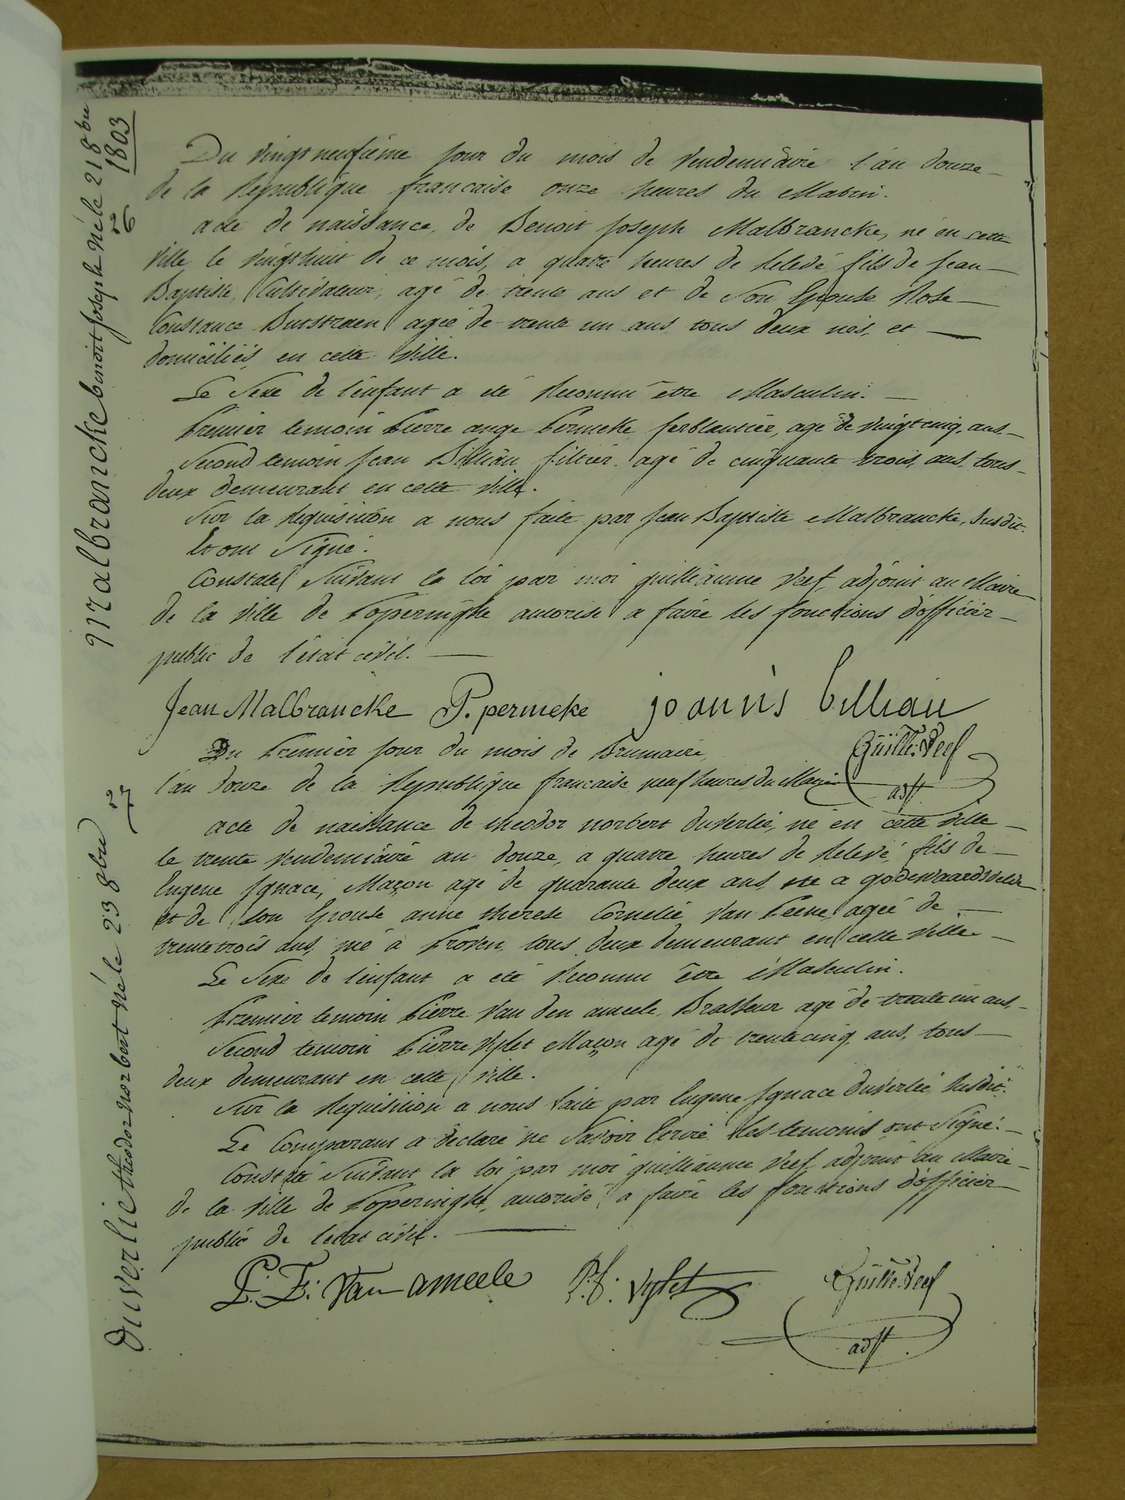 Du vingt neufieme jour du mois de Vendemiaire l'an douze
de la Republique francaise onze heures du Matin.
acte de naissance de Benoit Joseph Malbrancke, né en cette
ville le vingt huit de ce mois, a quatre heures de relevé fils de Jean
Baptiste, Cultivateur, agé de trente ans et de son Epouse Rose
Constance agée de trente un ans tous deux nés, et
domiciliés en cette Ville.
Le Sexe de l'enfant a été Reconnu être Masculin.
Premier temoin Pierre ange Permeke ferblantier, agé de vingt cinq ans
Second temoin Jean Billiau filtier agé de cinquante trois ans tous
deux demeurant en cette Ville.
Sur la Requisition a nous faite par Jean Baptiste Malbrancke, Susdit.
Et ont Signé.
Constaté Suivant la loi par moi guilliaume Reef adjoint au Maire
de la Ville de Poperinghe autorisé a faire les fonctions d'officier
public de l'etat civil.
Jean Malbrancke P. permeke joannis billiau
Guille. Reef
adjt
Du Premier jour du mois de Brumaire,
l'an Douze de la Republique francaise neuf heures du Matin
acte de naissance de theodor norbert Duverlie, né en cette ville
le trente Vendemiaire an douze, a quatre heures de Relevé, fils de
Eugene Ignace, Maçon agé de quarante deux ans, né a godewaardsvelde
et de son Epouse anne therese Cornelie Van Peene agée de
trente trois ans, né à Proven, tous deux demeurant en cette Ville
Le Sexe de l'enfant a été Reconnu être Masculin.
Premier temoin Pierre Van den ameele, Brasseur agé de trente un ans,
Second temoin Pierre Vylet Maçon agé de trente cinq ans, tous
deux demeurant en cette Ville.
Sur la Requisition a nous faite par Eugene Ignace Duverlie Susdit.
Le Comparant a declaré ne Savoir Ecrire les temoins ont Signé.
Constaté Suivant la loi par moi guilliaume Reef adjoint au Maire
de la Ville de Poperinghe, autorisé a faire les fonctions d'officier
public de l'etat civil.
P: F: Van ameele P: f: vylet Guille. Reef
adjt
Malbrancke benoit joseph né le 21 8bre
1803
26
Duverlie theodor norbert né le 23 8bre
27